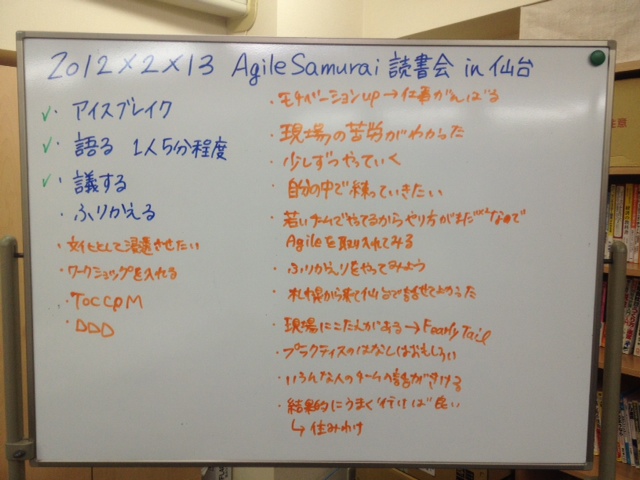 2012×2×13 AgileSamurai 読書会 in 仙台
✓・アイスブレイク
✓・語る 1人5分程度
✓・議する
・ふりかえる
・文化として浸透させたい
・ワークショップを入れる
・TOCCPM
・DDD
・モチベーションup→仕事がんばる
・現場の苦労がわかった
・少しずつやっていく
・自分の中で練っていきたい
・若いチームでやってるからやり方がまだなので
Agileを取り入れてみる
・ふりかえりをやってみよう
・札幌から来て仙台で話せてよかった
・現場にこたえがある→Fearly Tail
・プラクティスのはなしはおもしろい
・いろんな人のチームの話がきける
・結果的にうまく行けば良い
↳住みわけ